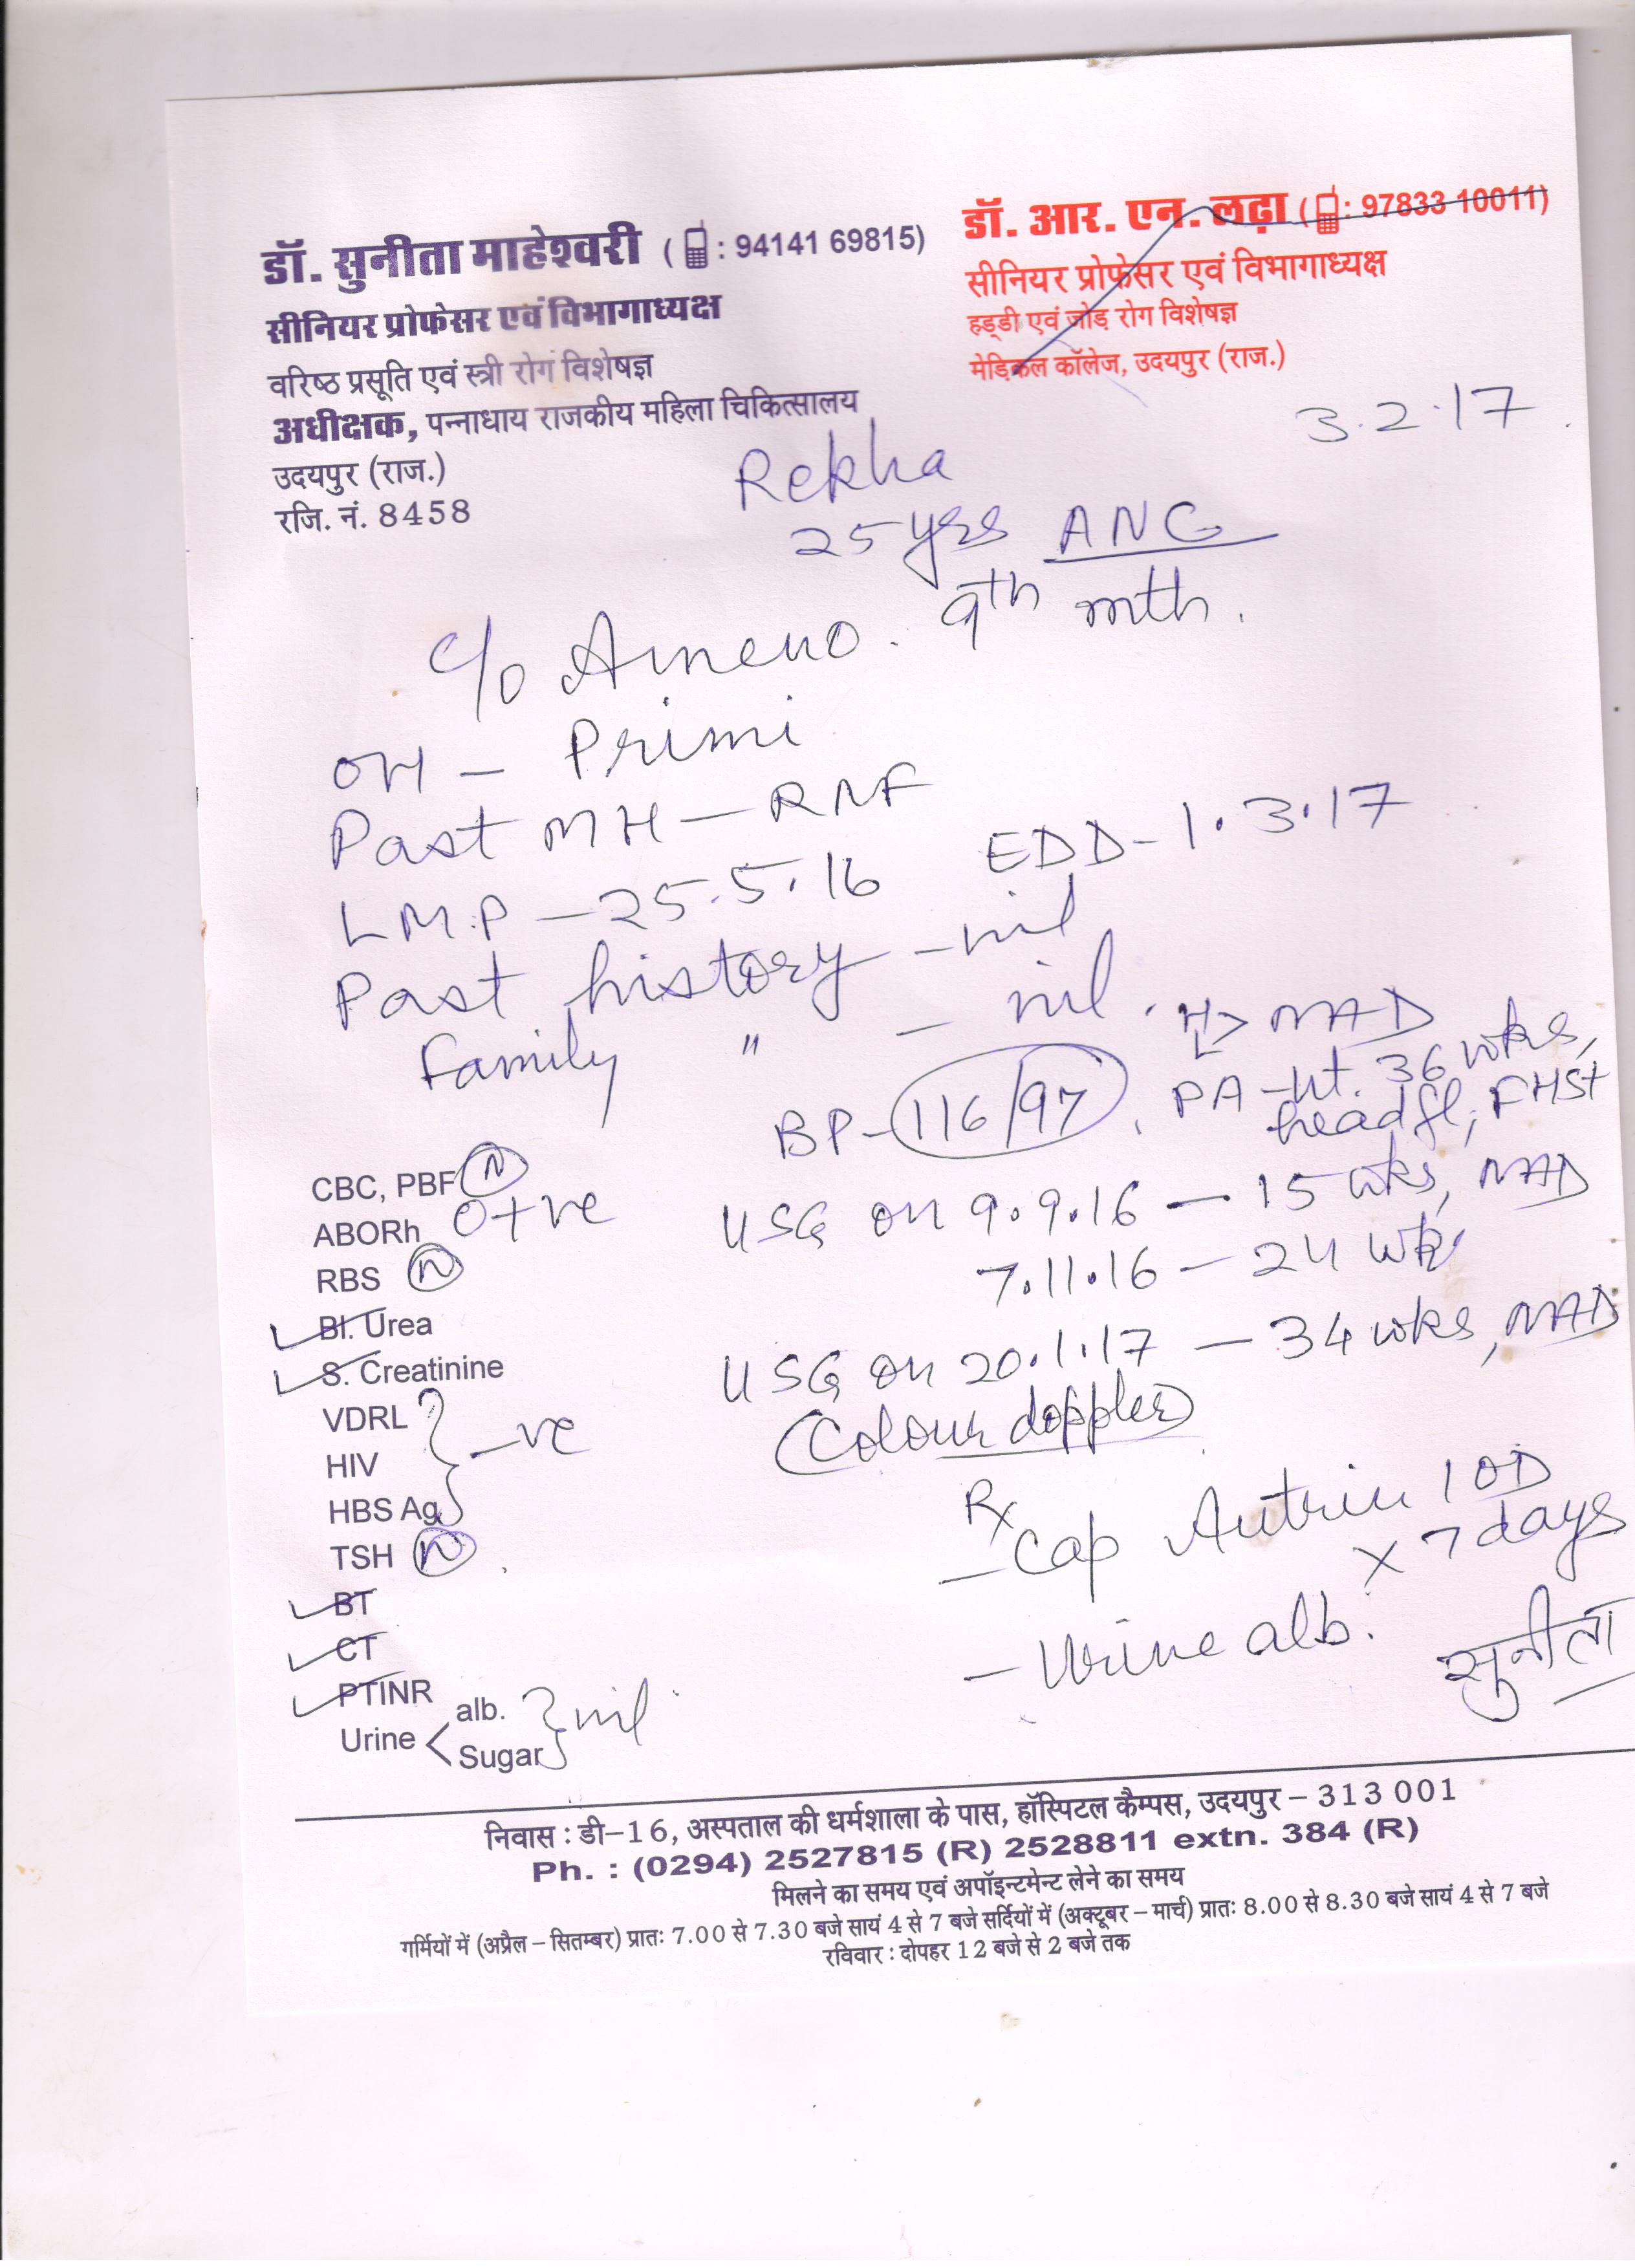 डॉ. सुनीता माहेश्वरी ( : 94141 69815)
सीनियर प्रोफेसर एवं विभागाध्यक्ष
वरिष्ठ प्रसूति एवं स्त्री रोग विशेषज्ञ
अधीक्षक, पन्नाधाय राजकीय महिला चिकित्सालय
उदयपुर (राज.)
रजि. नं. 8458
डॉ. आर. एन. लढ़ा ( : 97833 10011)
सीनियर प्रोफेसर एवं विभागाध्यक्ष
हड्डी एवं जोड़ रोग विशेषज्ञ
मेडिकल कॉलेज, उदयपुर (राज.)
3.2.17
Rekha
25 yrs ANC
c/o Ameno. 9th mth.
OH - Primi
Past MH - RNF
LMP - 25.5.16 EDD - 1.3.17
Past history - nil
Family " - nil.
H L > NAD
BP - 116/97, PA - ut. 36 wks,
head fl, FHS+
USG on 9.9.16 - 15 wks, NAD
7.11.16 - 24 wks
USG on 20.1.17 - 34 wks, NAD
(Colour doppler)
Rx
- Cap Autrin 1 OD
x 7 days
- Urine alb.
सुनीता
CBC, PBF N
ABORh O+ve
RBS N
Bl. Urea
S. Creatinine
VDRL
HIV -ve
HBS Ag
TSH N
BT
CT
PTINR
Urine < alb. Sugar } nil
निवास : डी-16, अस्पताल की धर्मशाला के पास, हॉस्पिटल कैम्पस, उदयपुर – 313 001
Ph. : (0294) 2527815 (R) 2528811 extn. 384 (R)
मिलने का समय एवं अपॉइन्टमेन्ट लेने का समय
गर्मियों में (अप्रैल – सितम्बर) प्रातः 7.00 से 7.30 बजे सायं 4 से 7 बजे सर्दियों में (अक्टूबर – मार्च) प्रातः 8.00 से 8.30 बजे सायं 4 से 7 बजे
रविवार : दोपहर 12 बजे से 2 बजे तक